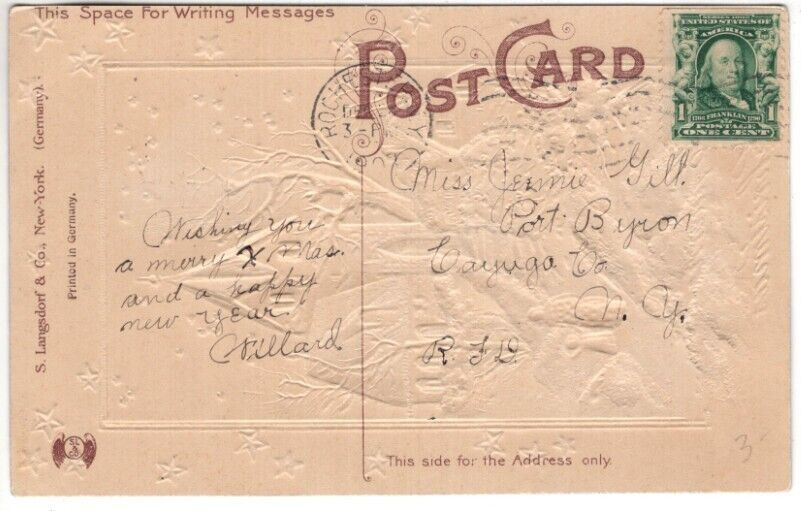 This Space For Writing Messages
POST CARD
S. Langsdorf & Co., New-York. (Germany).
Printed in Germany.
ROCHE
3-P
SERIES 1902
UNITED STATES OF
AMERICA
1 1706 FRANKLIN 1790 1
POSTAGE
ONE CENT
Wishing you
a merry X Mas.
and a happy
new year.
Willard
Miss Jennie Gill.
Port Byron
Cayuga Co
N. Y.
R. F. D.
This side for the Address only.
3